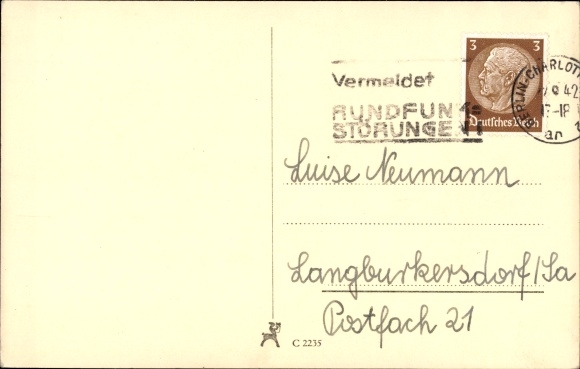 3 3
Deutsches Reich
Vermeldet
RUNDFUNK
STÖRUNGEN
BERLIN-CHARLOT
.9.42
-18
an
Luise Neumann
Langburkersdorf/Sa
Postfach 21
C 2235